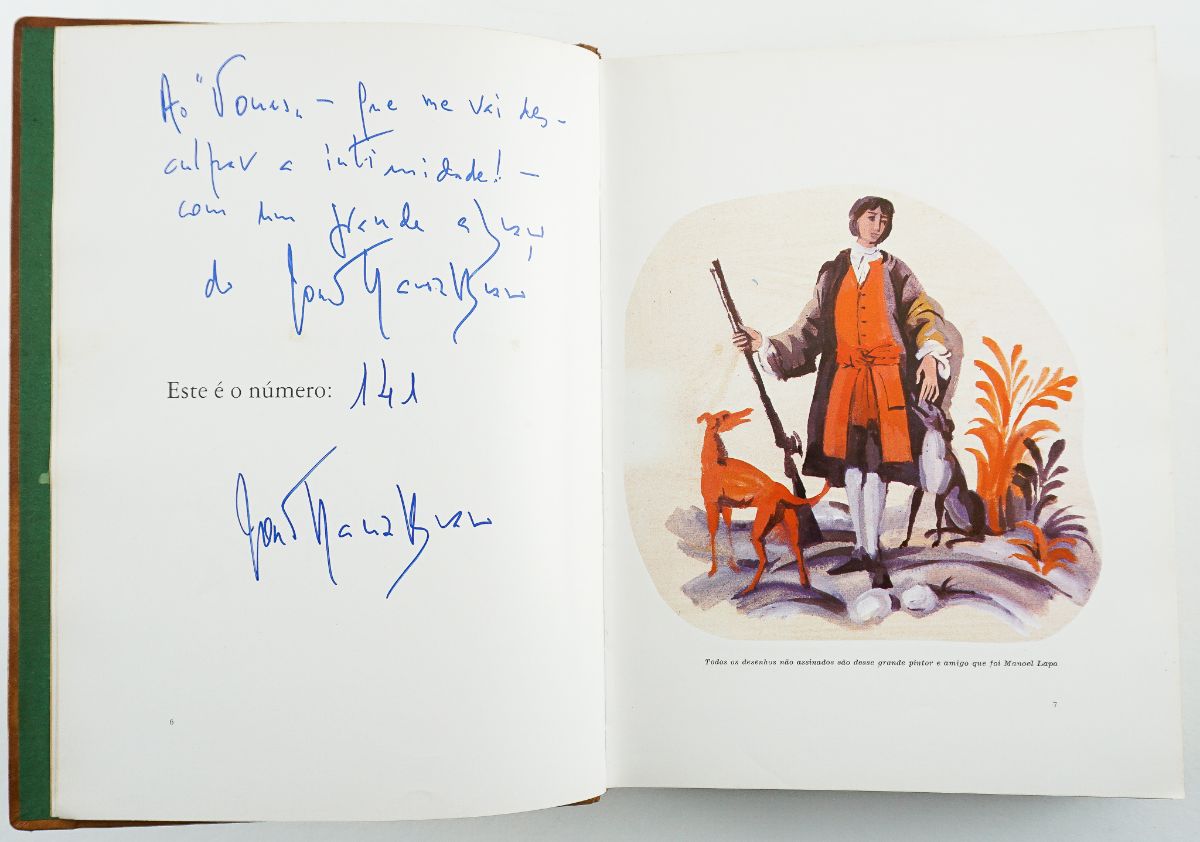 Ao " " — que me vai des-
culpar a intimidade! —
com um grande abraço
do
Este é o número: 141
6
Todos os desenhos não assinados são desse grande pintor e amigo que foi Manoel Lapa
7